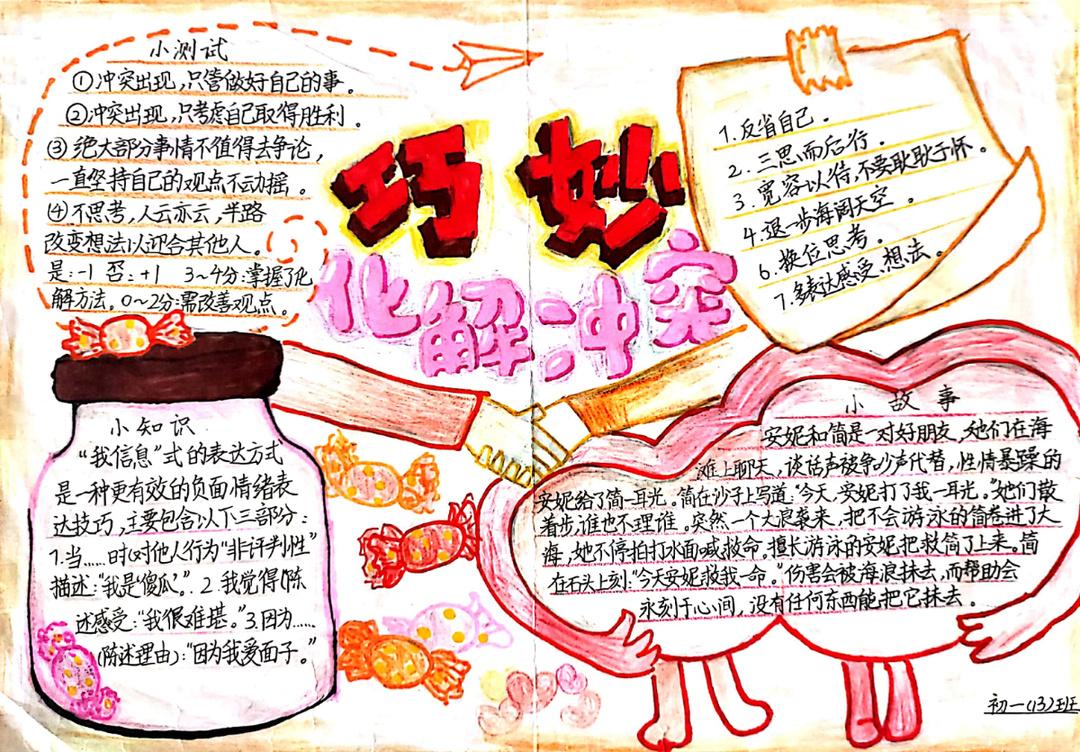 小测试
①冲突出现,只管做好自己的事。
②冲突出现,只考虑自己取得胜利。
③绝大部分事情不值得去争论,
一直坚持自己的观点不动摇。
④不思考,人云亦云,半路
改变想法以迎合其他人。
是:-1 否:+1 3~4分:掌握了化
解方法。0~2分:需改善观点。
巧妙
化解冲突
1.反省自己。
2.三思而后行。
3.宽容以待,不要耿耿于怀。
4.退一步海阔天空。
6.换位思考。
7.多表达感受、想法。
小知识
“我信息”式的表达方式
是一种更有效的负面情绪表
达技巧,主要包含以下三部分:
1.当……时(对他人行为“非评判性”
描述:“我是傻瓜”。2.我觉得(陈
述感受:“我很难堪。”3.因为……
(陈述理由):“因为我爱面子。”
小故事
安妮和简是一对好朋友,她们在海
滩上聊天,谈话声被争吵声代替,性情暴躁的
安妮给了简一耳光。简在沙子上写道:“今天,安妮打了我一耳光。”她们散
着步,谁也不理谁。突然一个大浪袭来,把不会游泳的简卷进了大
海,她不停拍打水面喊救命。擅长游泳的安妮把救简了上来。简
在石头上刻:“今天安妮救我一命。”伤害会被海浪抹去,而帮助会
永刻于心间,没有任何东西能把它抹去。
初一(13)班